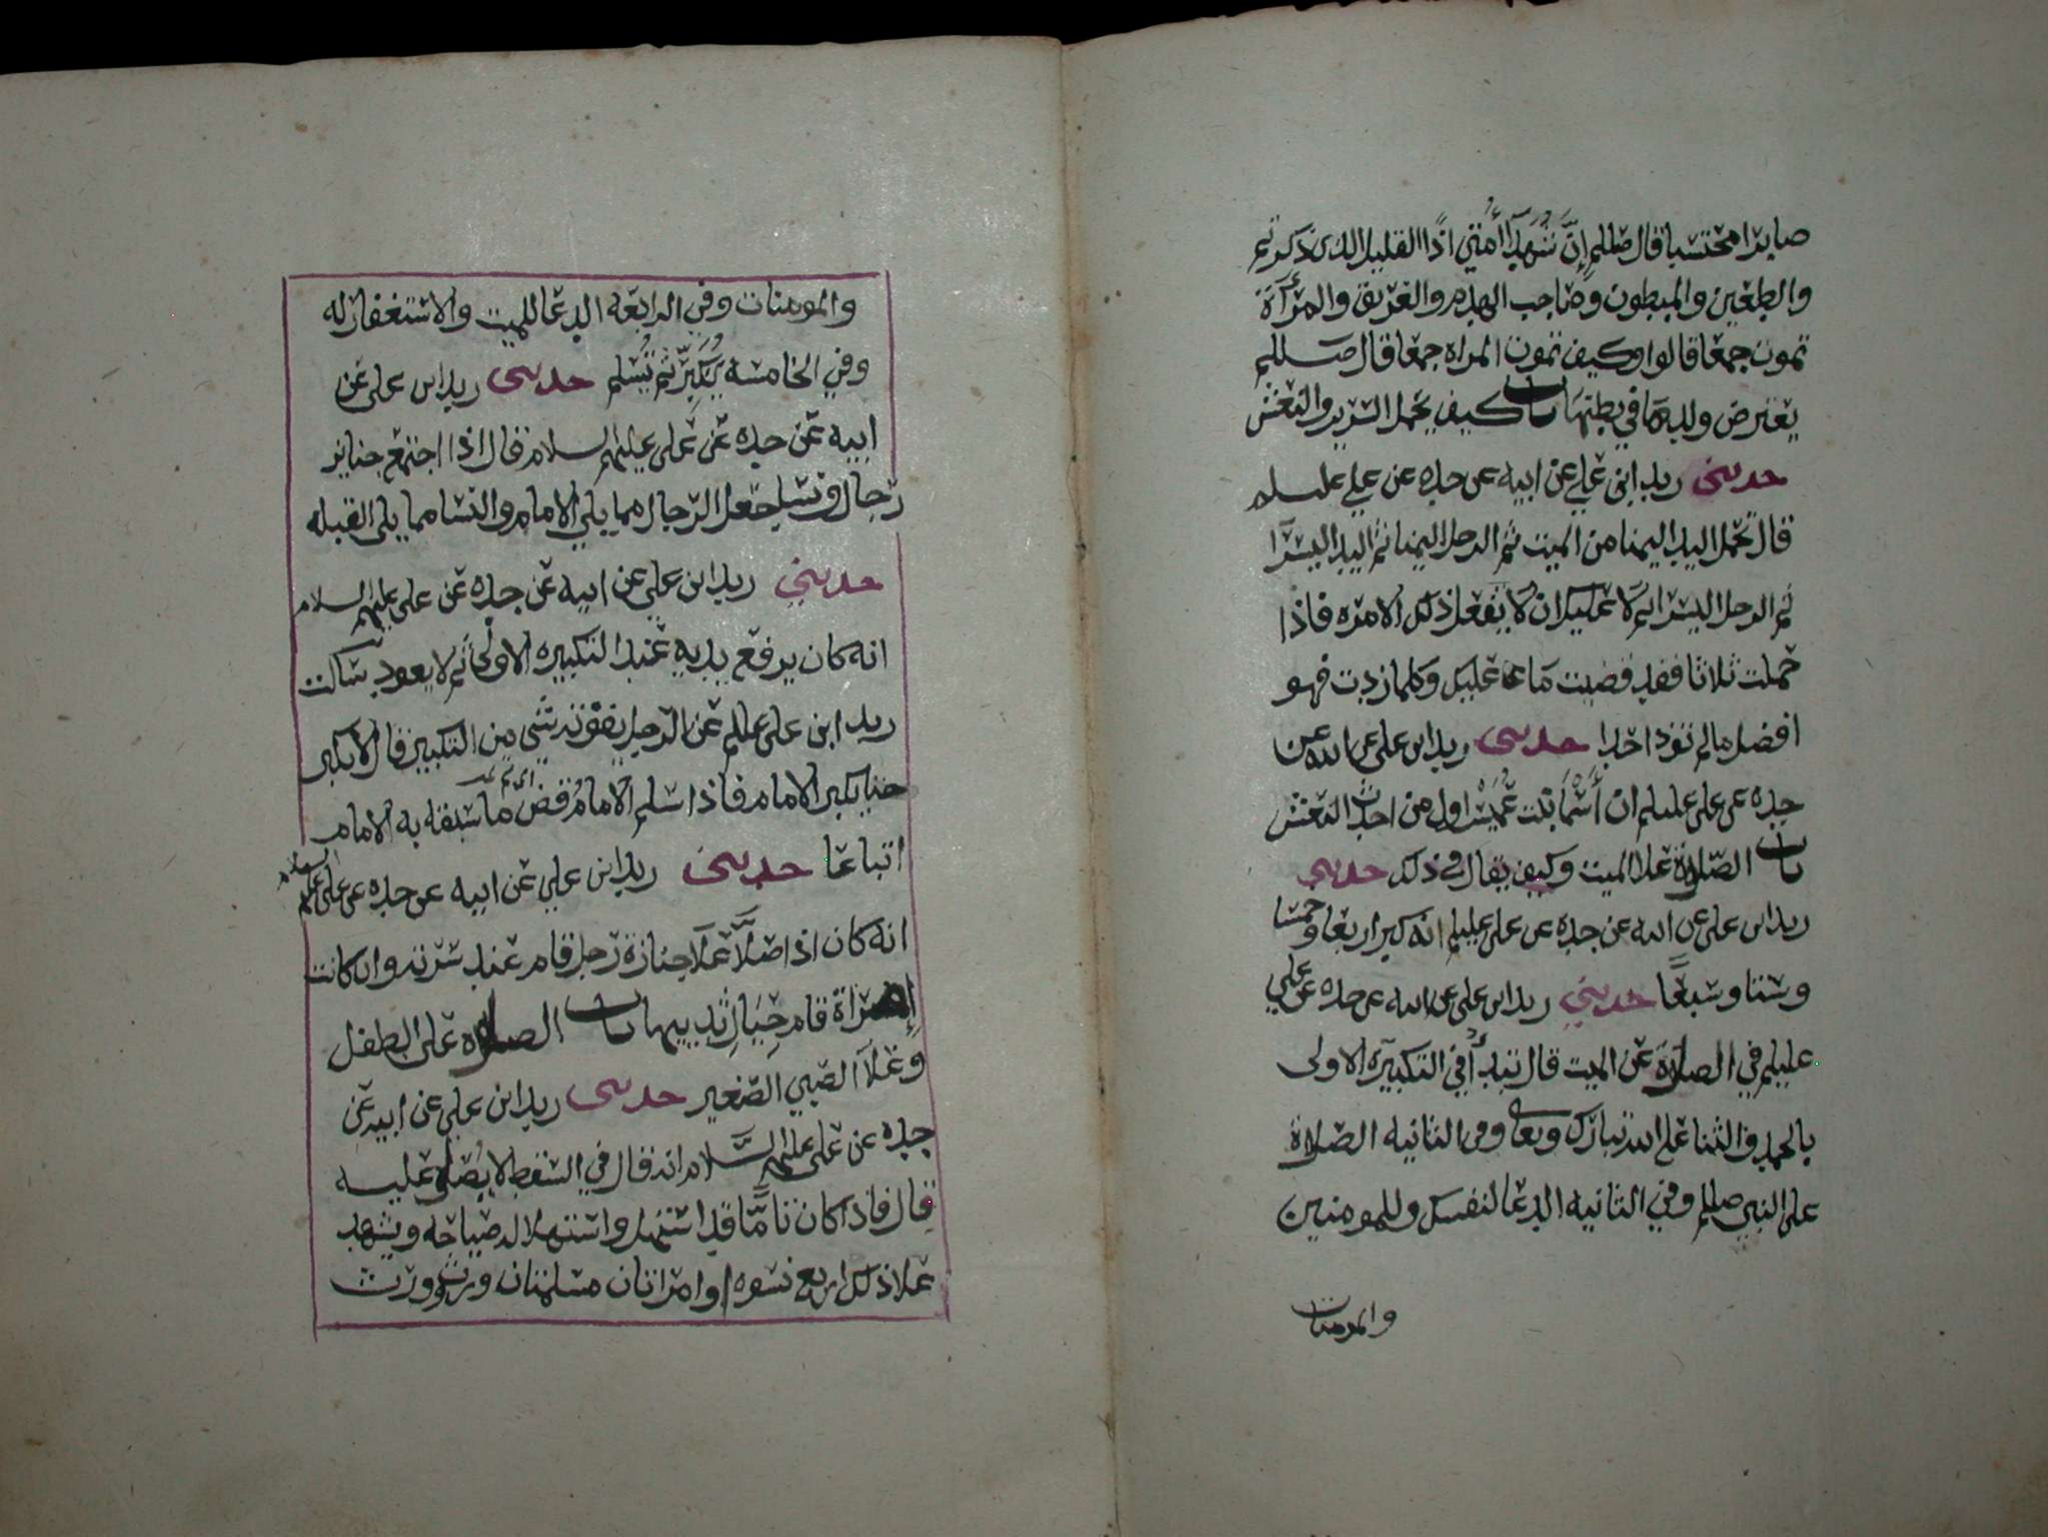 صابرا محتسبا قال صللم إنَّ شُهَدَآأُمتي اذًا القليل الذى ذكرتم
والطعين والمبطون وصاحب الهدم والغريق والمرأة
تموت جمعا قالوا وكيف تموت المراه جمعا قال صللم
يعترض ولدها في بطنها باب كيف يحمل السرير والنعش
حدثني زيد ابن علي عن ابيه عن جده عن علي عليلم
قال تحمل اليد اليمنا من الميت ثم الرجل اليمنا ثم اليد اليسرا
ثم الرجل اليسرا ثم لا عليك ان لا تفعل ذلك الامره فاذا
حملت ثلاثا فقد قضيت ما عليك وكلما زدت فهو
افضل ما لم تؤذ احدا حدثني زيد ابن على عن ابيه عن
جده عن على عليلم ان أسْمَا بنت عُمَيْس اول من احدث النعش
باب الصلاة علا الميت وكيف يقال في ذلك حدثني
زيد ابن على عن ابيه عن جده عن على عليلم انه كبر اربعا وخمسا
وستا وسبعًا حدثني زيد ابن على عن ابيه عن جده عن علي
عليلم في الصلاة عن الميت قال تبدأ في التكبيرة الاولى
بالحمد والثنا على الله تبارك وتعالى وفي الثانيه الصلاة
على النبي صللم وفي الثانيه الدعا لنفسك وللمومنين
والمومنات
والمومنات وفي الرابعه الدعا للميت والاستغفار له
وفي الخامسه يُكَبِّر ثم تُسلم حدثنى زيد ابن على عن
ابيه عن جده عن على عليهم السلام قال اذا اجتمع جنايز
رجال ونسا جعل الرجال مما يلي الامام والنسا مما يلى القبله
حدثني زيد ابن علي عن ابيه عن جده عن على عليهم السلام
انه كان يرفع يديه عند التكبيره الاولى ثم لا يعود سالت
زيد ابن على عللم عن الرجل يفوته شي من التكبير قال لا يكبر
حتا يكبر الامام فاذا سلم الامام قض ما سبقه به الامام
اتباعا حدثني زيد ابن علي عن ابيه عن جده عن على عليهم السلام
انه كان اذا صَلَّا عَلَا جنازة رجل قام عند سرته وان كانت
إمراة قام حِيَالِ ثدييها باب الصلاه على الطفل
وعَلَا الصبي الصغير حدثنى زيد ابن على عن ابيه عن
جده عن على عليهم السَّلام انه قال في السقط لا يُصَلى عليه
قال فاذا كان تامًّا قد استهل واستهلاله صياحه ويشهد
علا ذلك اربع نسوه او امراتان مسلمتان ورث وورث